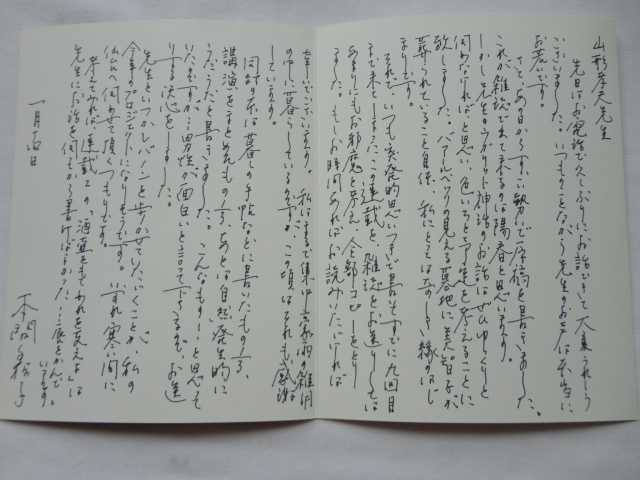 山形孝夫先生
先日はお電話で久しぶりにお話できて大変うれしう
ございました。いつものことながら先生のお声は本当に
お若いです。
さて、あの日からすごい勢いで原稿を書きました。
これが雑誌で出て来るのは陽春と思います。
しかし先生のウガリット神話のお話はぜひゆっくりと
伺わなければと思い、色いろと予定を考えることに
致しました。バアルベックの見える墓地に美智子が
葬られていること自体、私にとっては奇しき縁のはじ
まりです。
それで、いつも突発的思いつきで書いてすでに九回目
まで来てしまった、この連載を、雑誌をお送りしては
あまりにもお邪魔と考え、全部コピーをとり
ました。もしお時間あればお読みいただければ
幸いでございます。私は
の中に暮らしているのですが、この頃はそれも感謝
しています。
同封の本は暮しの手帖などに書いたもの
講演をまとめたもの あとは自然発生的に
うだうだと書きました。こんなもの…と思って
いたのですが…男性が面白いと言って下さるので、お送
りする決心をしました。
先生といつかレバノンを歩かせていただくことが、私の
今年のプロジェクトになりそうです。いずれ寒い間に
仙台へ伺わせて頂くつもりです。
考えてみれば、連載2の「酒宴 われを支えよ」は
先生にお話を伺ってから書けばよかった…と悔んで
います。
一月 日
本間 子